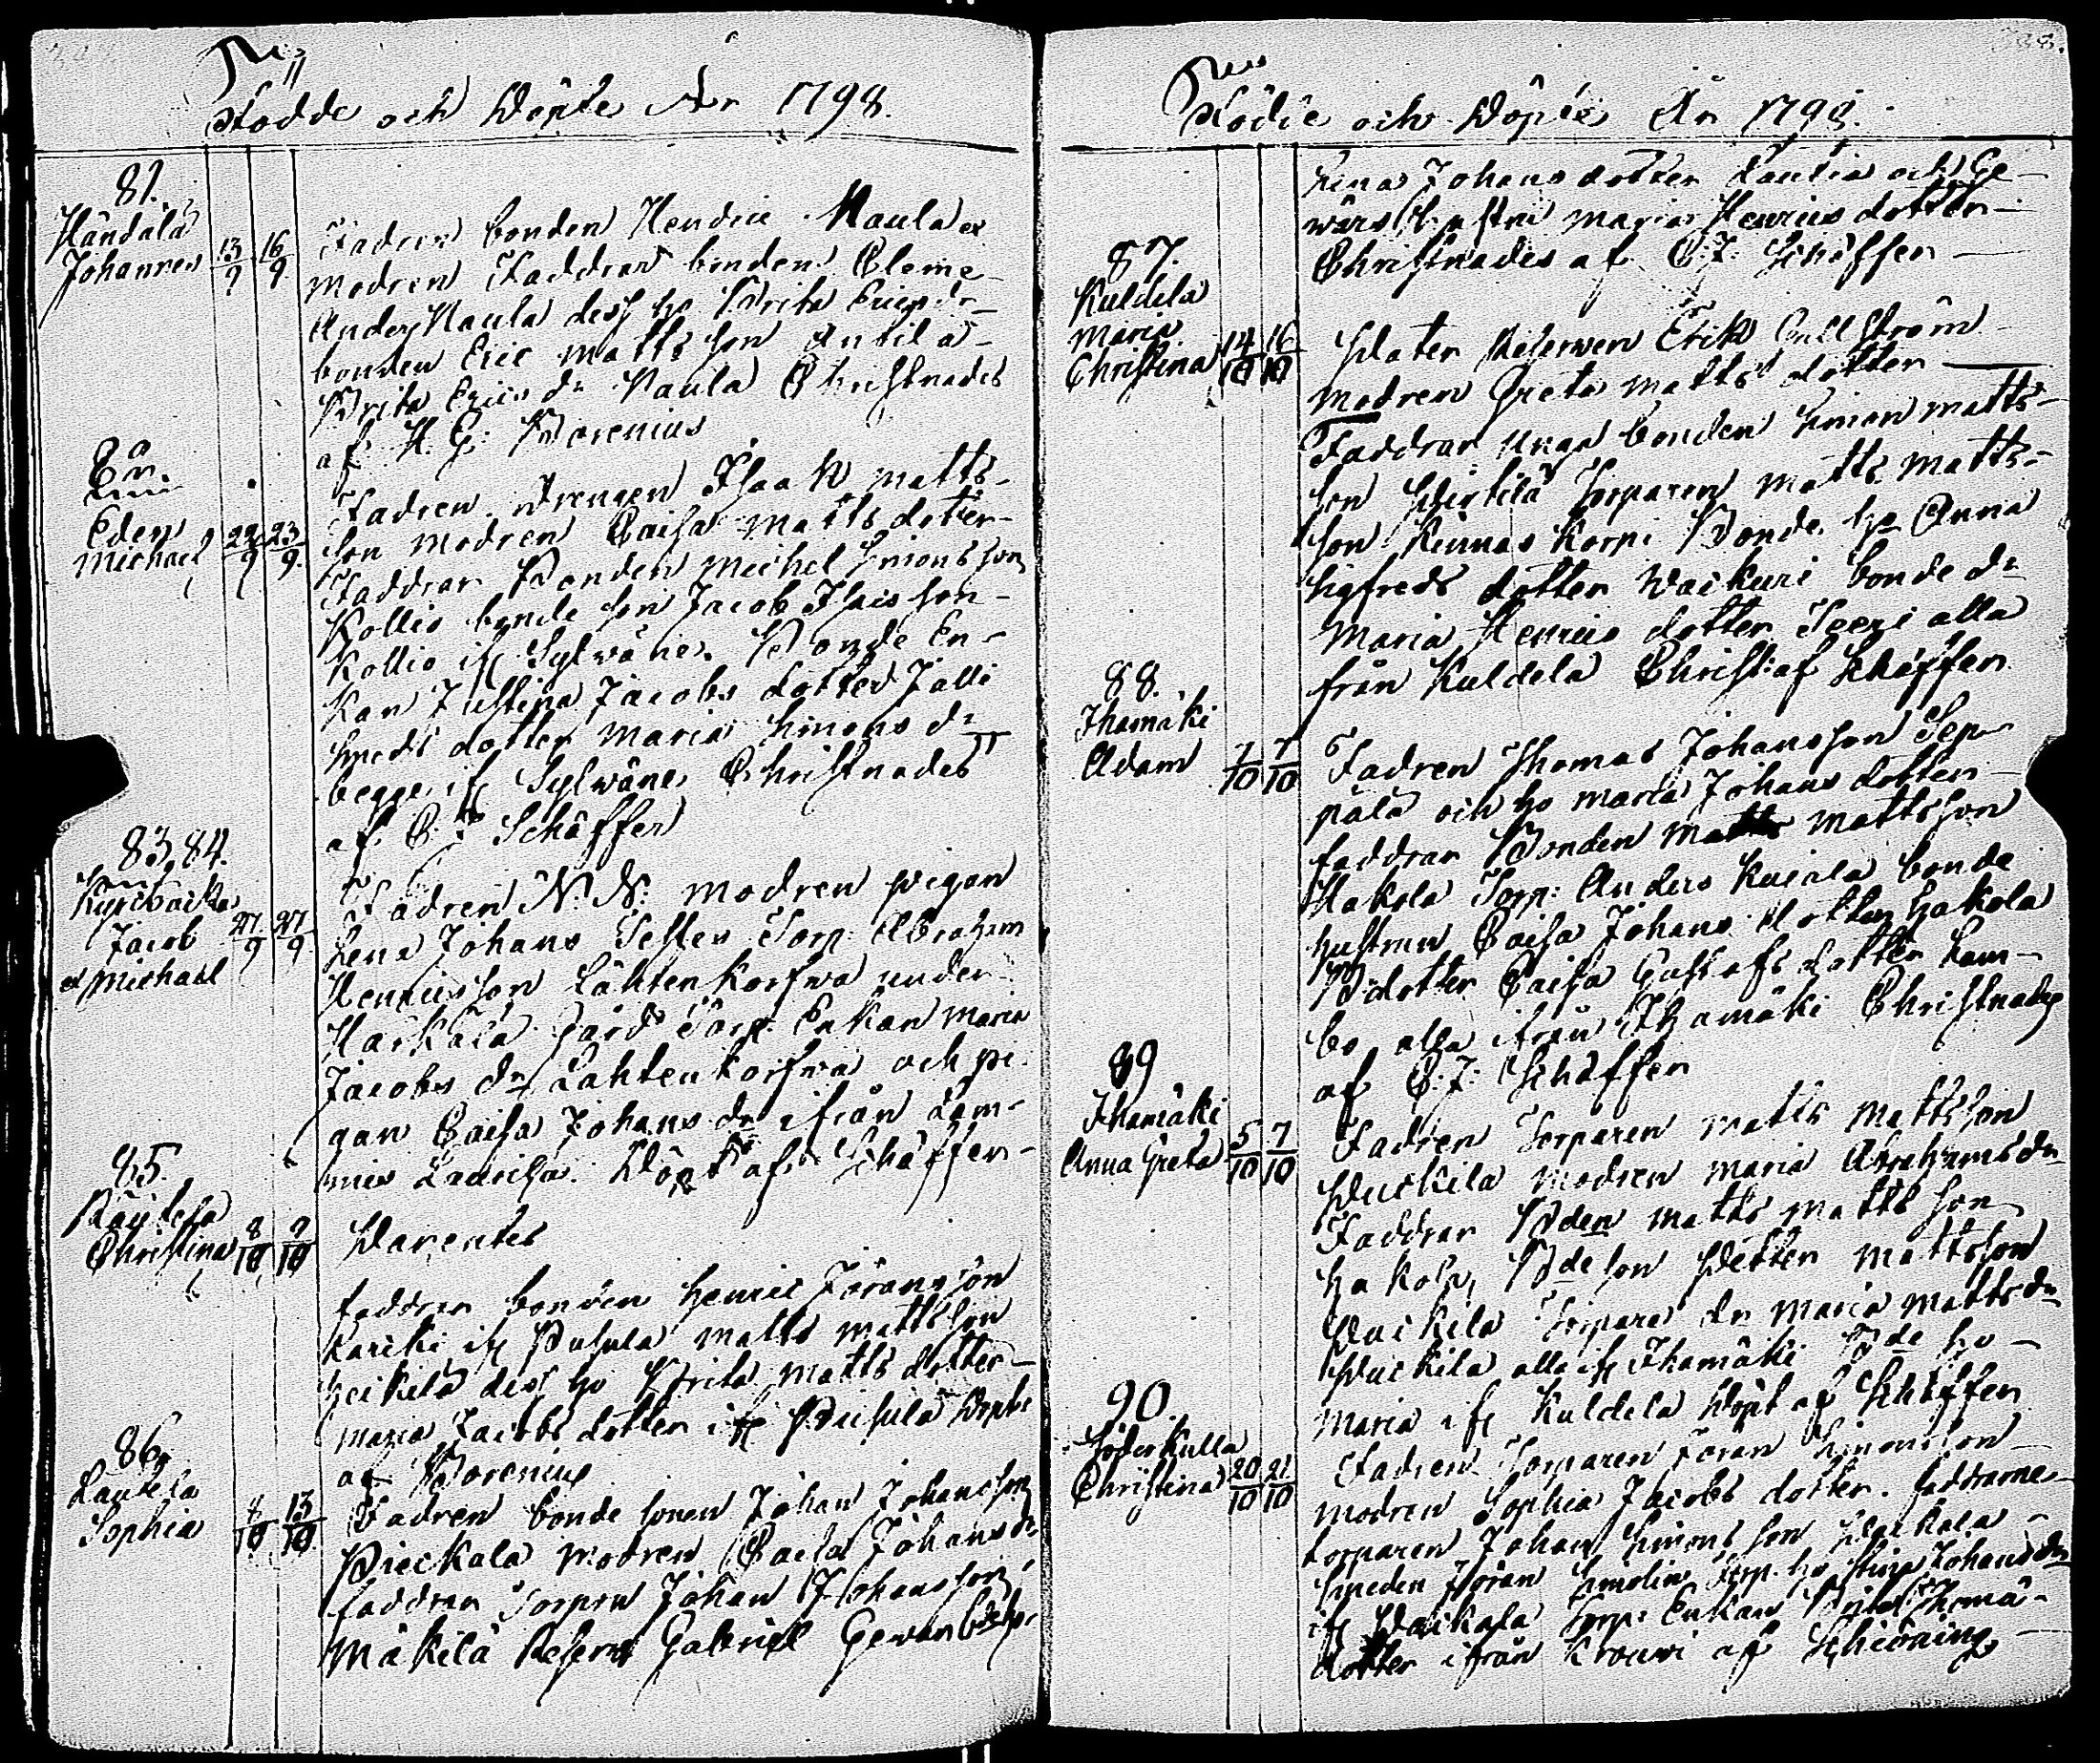 Födde och Döpte År 1798.
81.
Händälä
Johannes 13/9 16/9
Fadren bonden Hendric Naula
modren Faddrar bonden Cleme
Anders Naula dess ho Brita Erics dr
bonden Eric Mattsson Antila
Brita Erics dr Naula Christnades
af H. G: Borenius
82.
Eder
Michael 22/9 23/9
Fadren Drengen Isaak Matts-
son modren Caisa Matts dotter
Faddrar Bonden Michel Simonsson
Kollis bonde son Jacob
Kollis if Sylwäne. Bonde En-
kan Justina Jacobs dotter Jalli
smeds dotter Maria Simons dr
begge if Sylwäne Christnades
af C: F Schäffer
83, 84.
Jacob 27/9 27/9
et Michael
Fadren N: N: modren pigan
Lena Johans Testes Torp: Abraham
Henricsson Lähtenkorfwa under
Harkäla Gård Torp: Enkan Maria
Jacobs dr Lähtenkorfwa och pi-
gan Caisa Johans dr ifrån Lam-
mis Döpt af Schäffer
85.
Christina 8/10 9/10
Parentes
faddrar bonden Henric Göransson
if Pusula Matts Mattsson
Heikilä dess ho Brita Matts dotter
Maria Jacobs dotter if Pusula Döpte
af Borenius
86.
Lautela
Sophia 8/10 13/10
Fadren bonde sonen Johan Johansson
Pieckala modren Caisa Johans dr
faddrar Torpen Johan Johansson
Mäkilä Reserv Gabriel
Födde och Döpte År 1798.
Johans dotter Lautela och Ge-
Maria Henrics dotter
Christnades af C: F: Schäffer
87.
Kuldela
Maria
Christina 14/10 16/10
Pater Reserven Erik Gullström
Modren Greta Matts dotter
Faddrar unga bonden Simon Matts-
son Pertilä Torparen Matts Matts-
son Korpi Bonde ho Anna
Sigfreds dotter bonde dr
Maria Henrics dotter alla
från Kuldela Christ: af Schäffer
88.
Ihamäki
Adam 7/10 7/10
Fadren Thomas Johansson Sep-
pälä och ho Maria Johans dotter
faddrar Bonden Matts Mattsson
Hakola Torp: Anders bonde
hustrun Caisa Johans dotter Hakola
B dotter Caisa Gustafs dotter Lam-
bo alla ifrån Ihamäki Christnades
af C: F: Schäffer
89
Ihamäki
Anna Greta 5/10 7/10
Fadren Torparen Matts Mattsson
Puckila modren Maria Abrahams dr
Faddrar Bden Matts Matts son
Hakola, Bde son Petter Mattsson
Puckila Torpare dr Maria Matts dr
Puckila alla if Ihamäki Bde ho
Maria if Kuldela Döpt af Schäffer
90.
Söderkulla
Christina 20/10 21/10
Fadren Torparen Göran Simonsson
modren Sophia Jacobs dotter. faddrarne
torparen Johan Simons son Paikala
Smeden Jöran Smolin Torp. ho Stina Johans dr
if Paikala Torp: Enkan Brita Thoma-
dotter ifrån Krouwi af